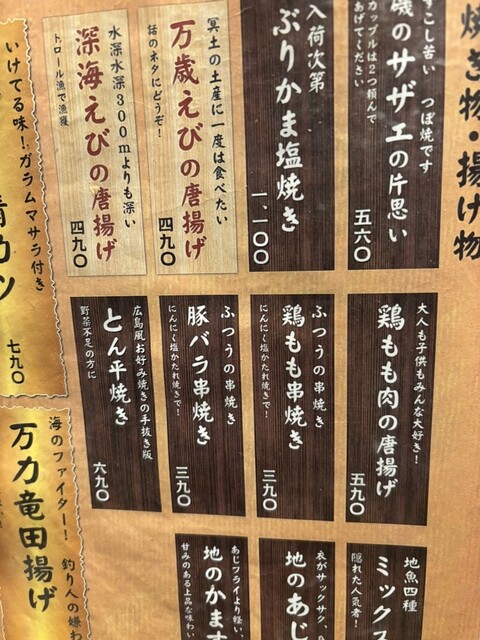 焼き物・揚げ物
すこし苦い　つぼ焼です
磯のサザエの片思い
カップルは2つ頼んで
あげてください
五六〇
入荷次第
ぶりかま塩焼き
一、一〇〇
冥土の土産に一度は食べたい
万歳えびの唐揚げ
話のネタにどうぞ!
四九〇
水深水深300mよりも深い
深海えびの唐揚げ
トロール漁で漁獲
四九〇
大人も子供もみんな大好き!
鶏もも肉の唐揚げ
五九〇
ふつうの串焼き
鶏もも串焼き
にんにく塩かたれ焼きで!
三九〇
ふつうの串焼き
豚バラ串焼き
にんにく塩かたれ焼きで!
三九〇
広島風お好み焼きの手抜き版
とん平焼き
野菜不足の方に
六九〇
地魚四種
ミックス
隠れた人気者!
衣がサックサク、
地のあじ
あじフライより軽い、
地のかます
甘みのある上品な味わい
いけてる味!ガラムマサラ付き
カツ
七九〇
海のファイター!　釣り人の嫌わ
万力竜田揚げ